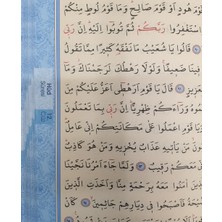 وْمَ هُودٍ أَوْ قَوْمَ صَالِحٍ وَمَا قَوْمُ لُوطٍ مِنْكُمْ
اسْتَغْفِرُوا رَبَّكُمْ ثُمَّ تُوبُوا إِلَيْهِ إِنَّ رَبِّي
قَالُوا يَا شُعَيْبُ مَا نَفْقَهُ كَثِيرًا مِمَّا تَقُولُ
فِينَا ضَعِيفًا وَلَوْلَا رَهْطُكَ لَرَجَمْنَاكَ وَمَا
قَالَ يَا قَوْمِ أَرَهْطِي أَعَزُّ عَلَيْكُمْ مِنَ
مُوهُ وَرَاءَكُمْ ظِهْرِيًّا إِنَّ رَبِّي بِمَا تَعْمَلُونَ
قَوْمِ اعْمَلُوا عَلَى مَكَانَتِكُمْ إِنِّي عَامِلٌ
نَ مَنْ يَأْتِيهِ عَذَابٌ يُخْزِيهِ وَمَنْ هُوَ كَاذِبٌ
مَعَكُمْ رَقِيبٌ وَلَمَّا جَاءَ أَمْرُنَا نَجَّيْنَا
ذِينَ آمَنُوا مَعَهُ بِرَحْمَةٍ مِنَّا وَأَخَذَتِ الَّذِينَ
ةُ فَأَصْبَحُوا فِي دِيَارِهِمْ جَاثِمِينَ